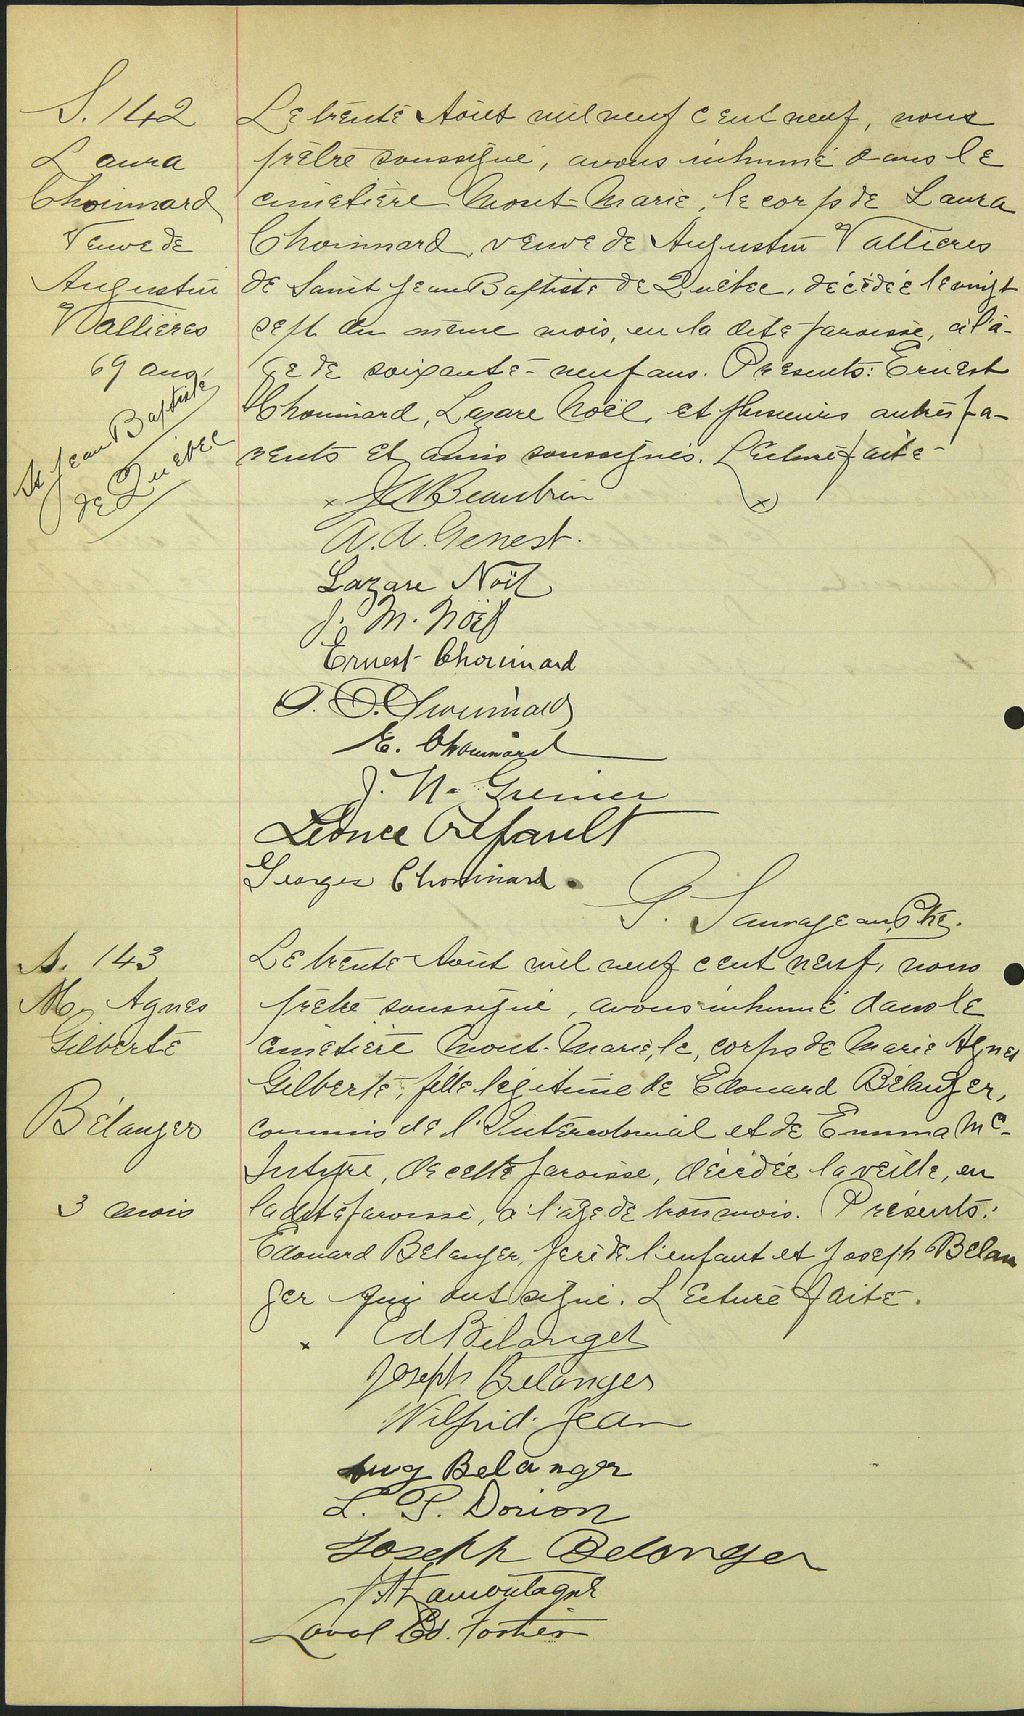 S. 142
Laura
Chouinard
Veuve de
Augustin
Vallières
69 ans
St Jean Baptiste
de Québec
Le trente Août mil neuf cent neuf, nous
prêtre soussigné, avons inhumé dans le
cimetière Mont-Marie, le corps de Laura
Chouinard, veuve de Augustin Vallières
de Saint Jean Baptiste de Québec, décédée le vingt
sept du même mois, en la dite paroisse, à l'â-
ge de soixante-neuf ans. Présents: Ernest
Chouinard, Lazare Noël, et plusieurs autres pa-
rents et amis soussignés. Lecture faite
x Beaubien
A. A. Genest.
Lazare Noël
J. M. Noël
Ernest Chouinard
Chouinard
E. Chouinard
J. N. Grenier
Léonce Crépault
Georges Chouinard
G. Sauvageau, Ptre.
S. 143
M. Agnes
Gilberte
Bélanger
3 mois
Le trente Août mil neuf cent neuf, nous
prêtre soussigné, avons inhumé dans le
cimetière Mont-Marie, le corps de Marie Agnes
Gilberte, fille légitime de Edouard Bélanger,
commis de l'Intercolonial et de Emma Mc-
Intyre, de cette paroisse, décédée la veille, en
la dite paroisse, à l'âge de trois mois. Présents:
Edouard Bélanger, père de l'enfant et Joseph Bélan
ger qui ont signé. Lecture faite.
x Ed Bélanger
Joseph Belanger
Wilfrid Jean
Aug Belanger
L. P. Dorion
Joseph Belanger
Lamontagne
Laval Ed. Fortier